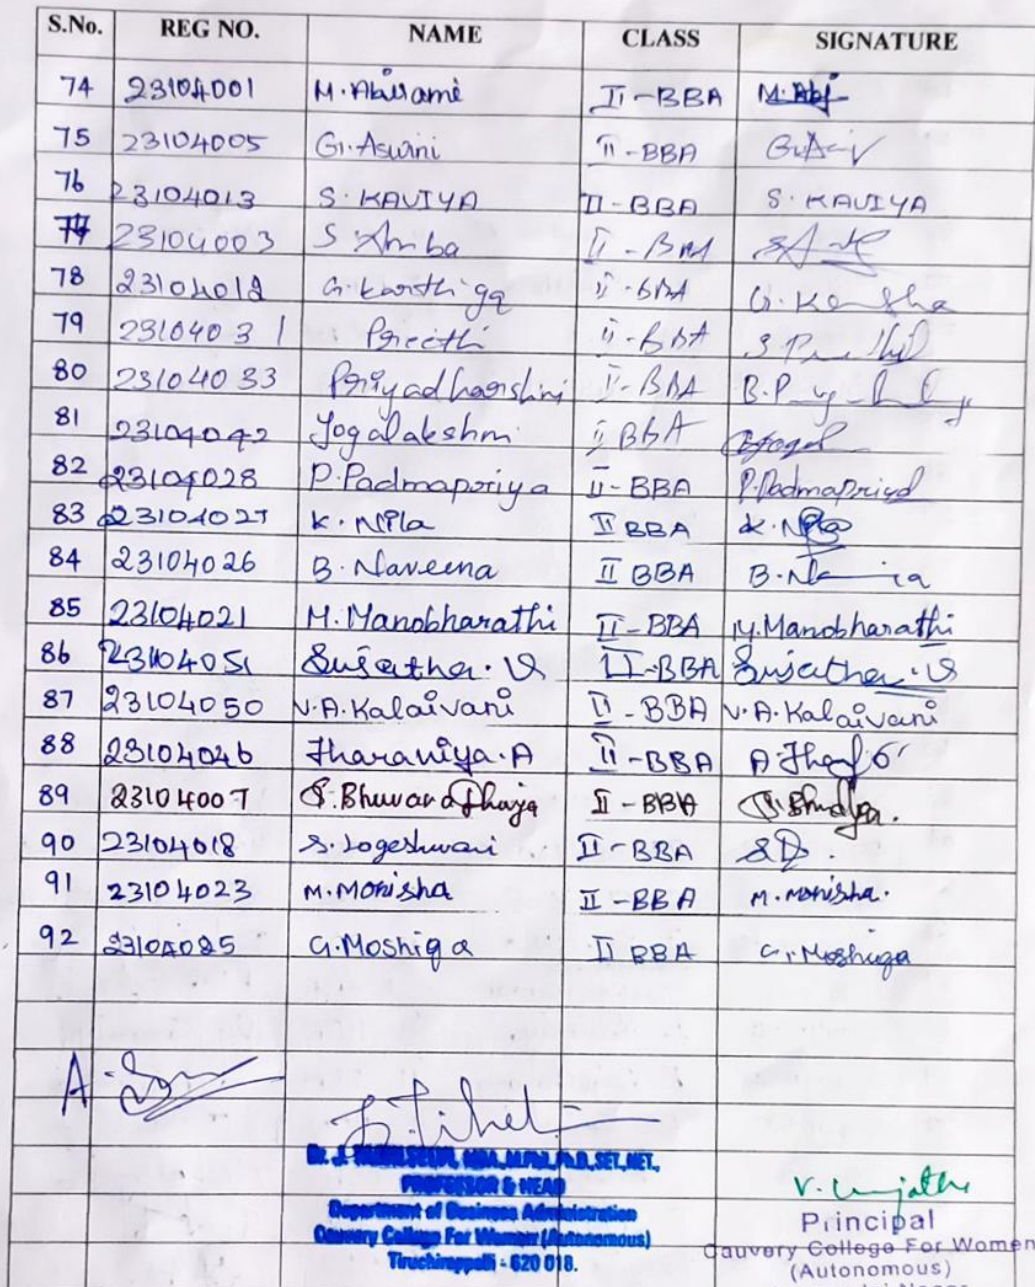 S.No. REG NO. NAME CLASS SIGNATURE
74 23104001 M. Abirami II-BBA M. Abj
75 23104005 G. Aswini II-BBA
76 23104013 S. KAVIYA II-BBA S. KAVIYA
77 23104003 S. Amba II-BBA
78 23104012 G. II-BBA
79 23104031 Preethi II-BBA
80 23104033 Priyadharshini II-BBA
81 23104042 Yogalakshmi II BBA
82 23104028 P. Padmapriya II-BBA P. Padmapriya
83 23104027 K. Nila II BBA K. Nila
84 23104026 B. Naveena II BBA
85 23104021 M. Manobharathi II-BBA M. Manobharathi
86 23104051 Sujatha. V II-BBA Sujatha. V
87 23104050 V.A. Kalaivani II-BBA V.A. Kalaivani
88 23104046 Tharaniya. A II-BBA
89 23104007 II-BBA
90 23104018 S. Logeshwari II-BBA
91 23104023 M. Monisha II-BBA M. Monisha.
92 23104025 G. Moshiga II BBA G. Moshiga
Dr. J. MBA., M.Phil., Ph.D., SET., NET.,
PROFESSOR & HEAD
Department of Business Administration
Cauvery College For Women (Autonomous)
Tiruchirappalli - 620 018.
Principal
Cauvery College For Women
(Autonomous)